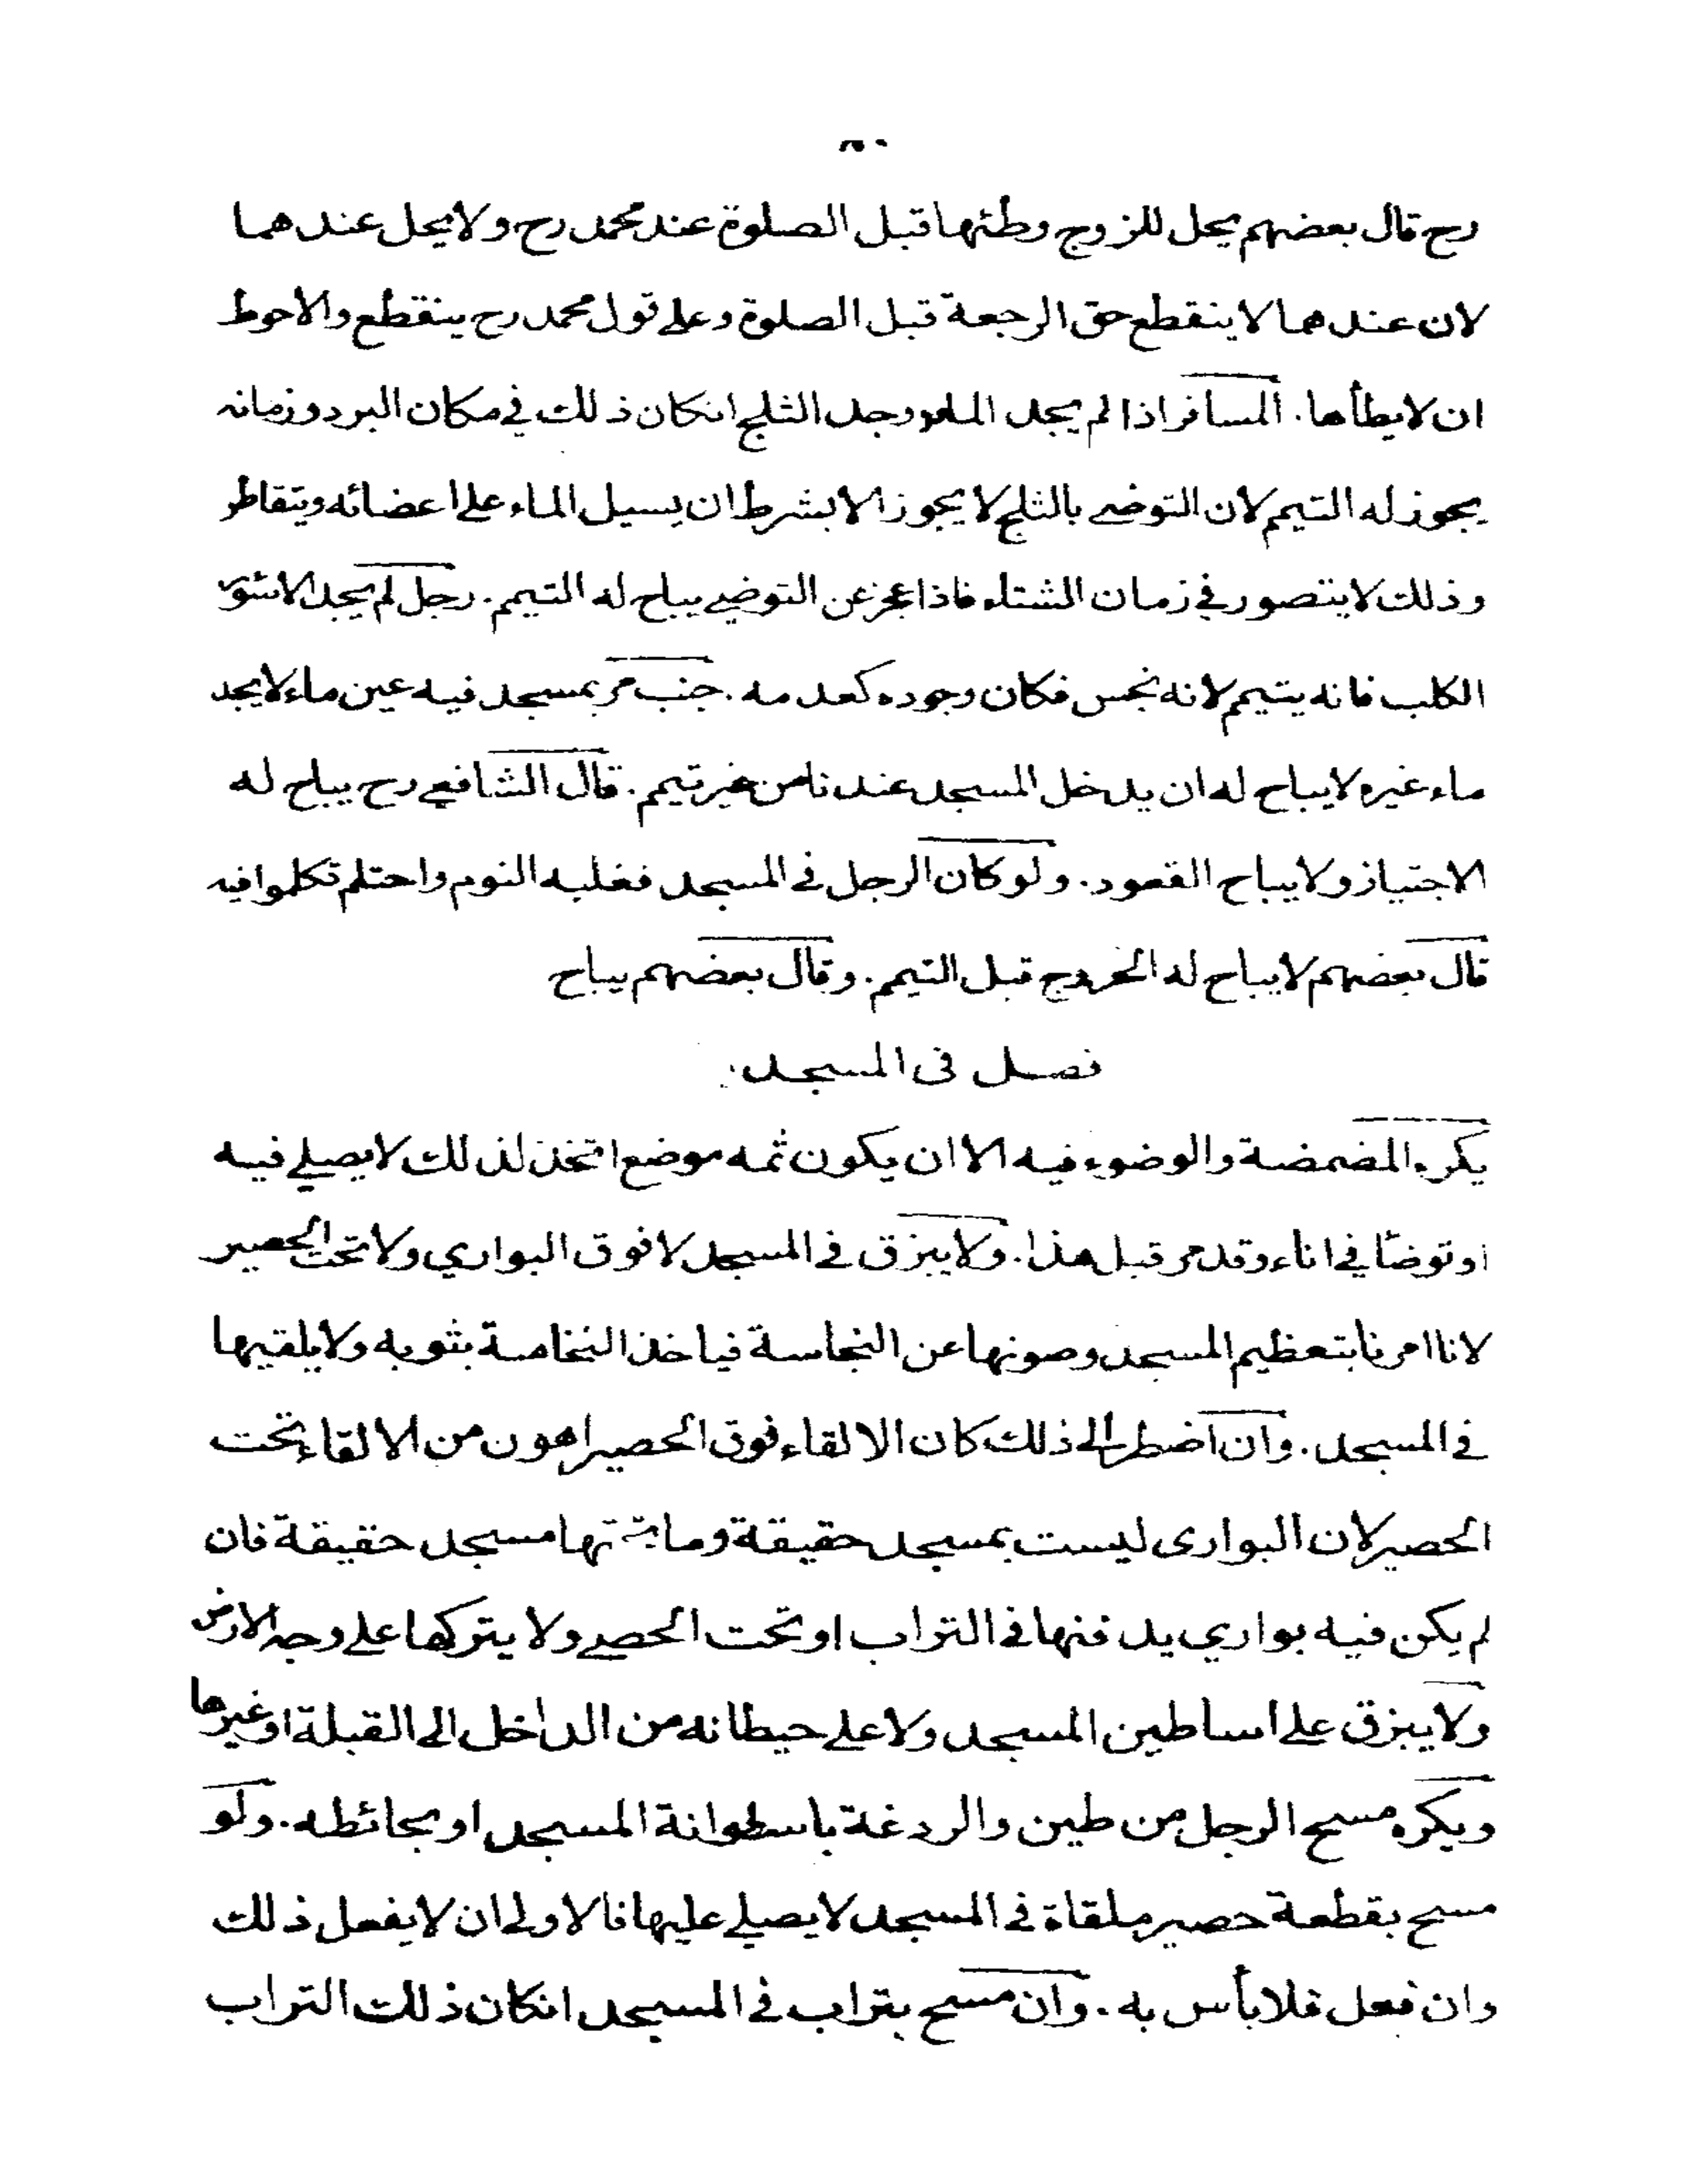 رح قال بعضهم يحل للزوج وطئها قبل الصلوة عند محمد رح ولا يحل عندهما
لان عندهما لا ينقطع حق الرجعة قبل الصلوة وعلى قول محمد رح ينقطع والاحوط
ان لا يطأها. المسافر اذا لم يجد الماء ووجد الثلج انكان ذلك في مكان البرد وزمانه
يجوز له التيمم لان التوضي بالثلج لا يجوز الا بشرط ان يسيل الماء على اعضائه ويتقاطر
وذلك لا يتصور في زمان الشتاء فاذا عجز عن التوضي يباح له التيمم. رجل لم يجد الا سؤر
الكلب فانه يتيمم لانه نجس فكان وجوده كعدمه. جنب مر بمسجد فيه عين ماء لا يجد
ماء غيره لا يباح له ان يدخل المسجد عندنا من غير تيمم. قال الشافعي رح يباح له
الاجتياز ولا يباح القعود. ولو كان الرجل في المسجد فغلبه النوم واحتلم تكلموا فيه
قال بعضهم لا يباح له الخروج قبل التيمم. وقال بعضهم يباح
فصل فى المسجد
يكره المضمضة والوضوء فيه الا ان يكون ثمه موضع اتخذ لذلك لا يصلي فيه
او توضأ في اناء وقد مر قبل هذا. ولا يبزق في المسجد لا فوق البواري ولا تحت الحصير
لانا امرنا بتعظيم المسجد وصونها عن النجاسة فياخذ النخامة بثوبه ولا يلقيها
في المسجد. وان اضطر الى ذلك كان الالقاء فوق الحصير اهون من الالقاء تحت
الحصير لان البوارى ليست بمسجد حقيقة وما تحتها مسجد حقيقة فان
لم يكن فيه بواري يدفنها في التراب او تحت الحصى ولا يتركها على وجه الارض
ولا يبزق على اساطين المسجد ولا على حيطانه من الداخل الى القبلة او غيرها
ويكره مسح الرجل من طين والردغة باسطوانة المسجد او بحائطه. ولو
مسح بقطعة حصير ملقاة في المسجد لا يصلي عليها فالاولى ان لا يفعل ذلك
وان فعل فلا بأس به. وان مسح بتراب في المسجد انكان ذلك التراب